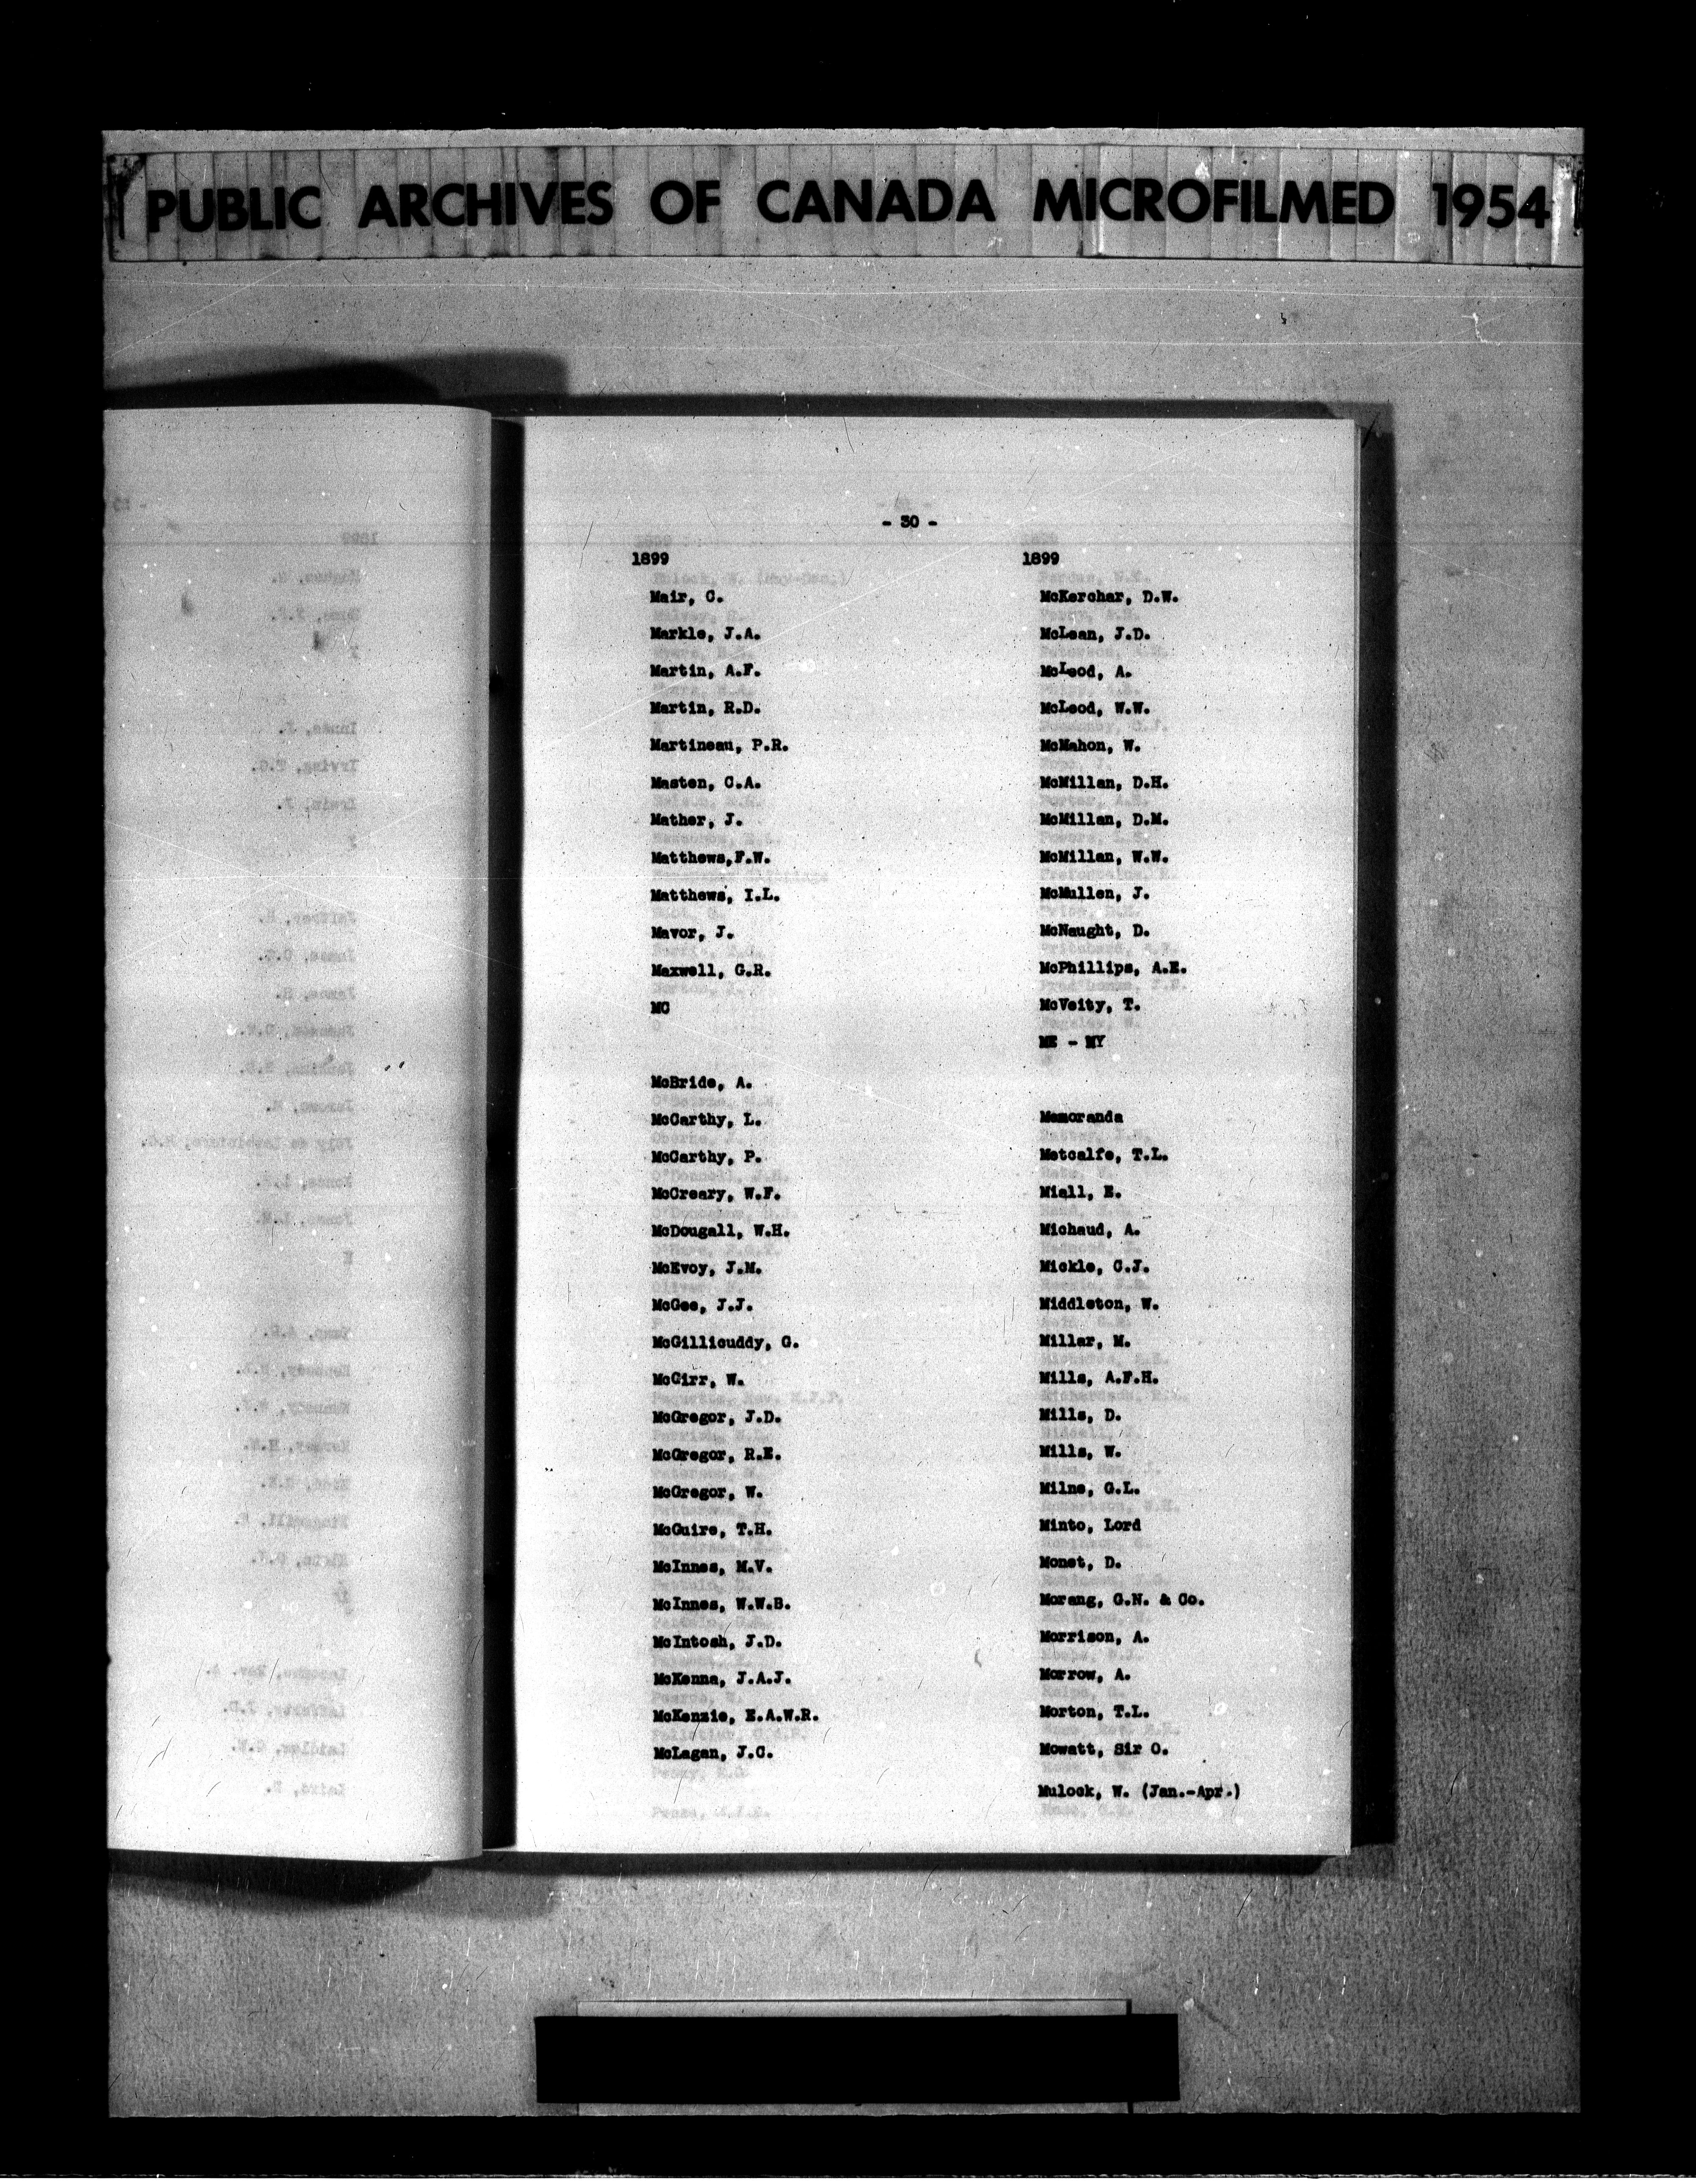 PUBLIC ARCHIVES OF CANADA MICROFILMED 1954
- 30 -
1899
Mair, C.
Markle, J.A.
Martin, A.F.
Martin, R.D.
Martineau, P.R.
Masten, C.A.
Mather, J.
Matthews,F.W.
Matthews, I.L.
Mavor, J.
Maxwell, G.R.
MC
McBride, A.
McCarthy, L.
McCarthy, P.
McCreary, W.F.
McDougall, W.H.
McEvoy, J.M.
McGee, J.J.
McGillicuddy, G.
McGirr, W.
McGregor, J.D.
McGregor, R.E.
McGregor, W.
McGuire, T.H.
McInnes, M.V.
McInnes, W.W.B.
McIntosh, J.D.
McKenna, J.A.J.
McKenzie, E.A.W.R.
McLagan, J.C.
1899
McKerchar, D.W.
McLean, J.D.
McLeod, A.
McLeod, W.W.
McMahon, W.
McMillan, D.H.
McMillan, D.M.
McMillan, W.W.
McMullen, J.
McNaught, D.
McPhillips, A.E.
McVeity, T.
ME - MY
Memoranda
Metcalfe, T.L.
Miall, E.
Michaud, A.
Mickle, C.J.
Middleton, W.
Millar, M.
Mills, A.F.H.
Mills, D.
Mills, W.
Milne, G.L.
Minto, Lord
Monet, D.
Morang, G.N. & Co.
Morrison, A.
Morrow, A.
Morton, T.L.
Mowatt, Sir O.
Mulock, W. (Jan.-Apr.)